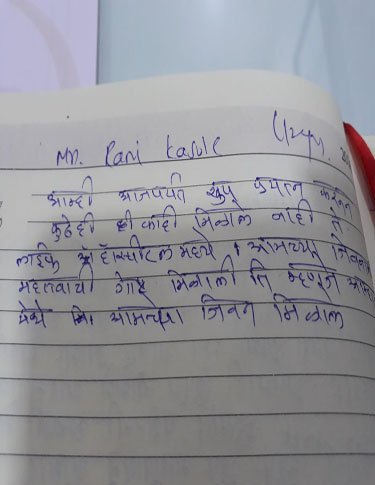 Mr. Rani Kasule
आम्ही आजपर्यंत खुप प्रयत्न करून
कुठेही ही काही मिळाल नाही ते
लाईफ हॉस्पीटल मध्ये आमच्या
महत्वाची गोष्ट मिळाली ति म्हणजे
येथे आमच्या जिवन मिळाल